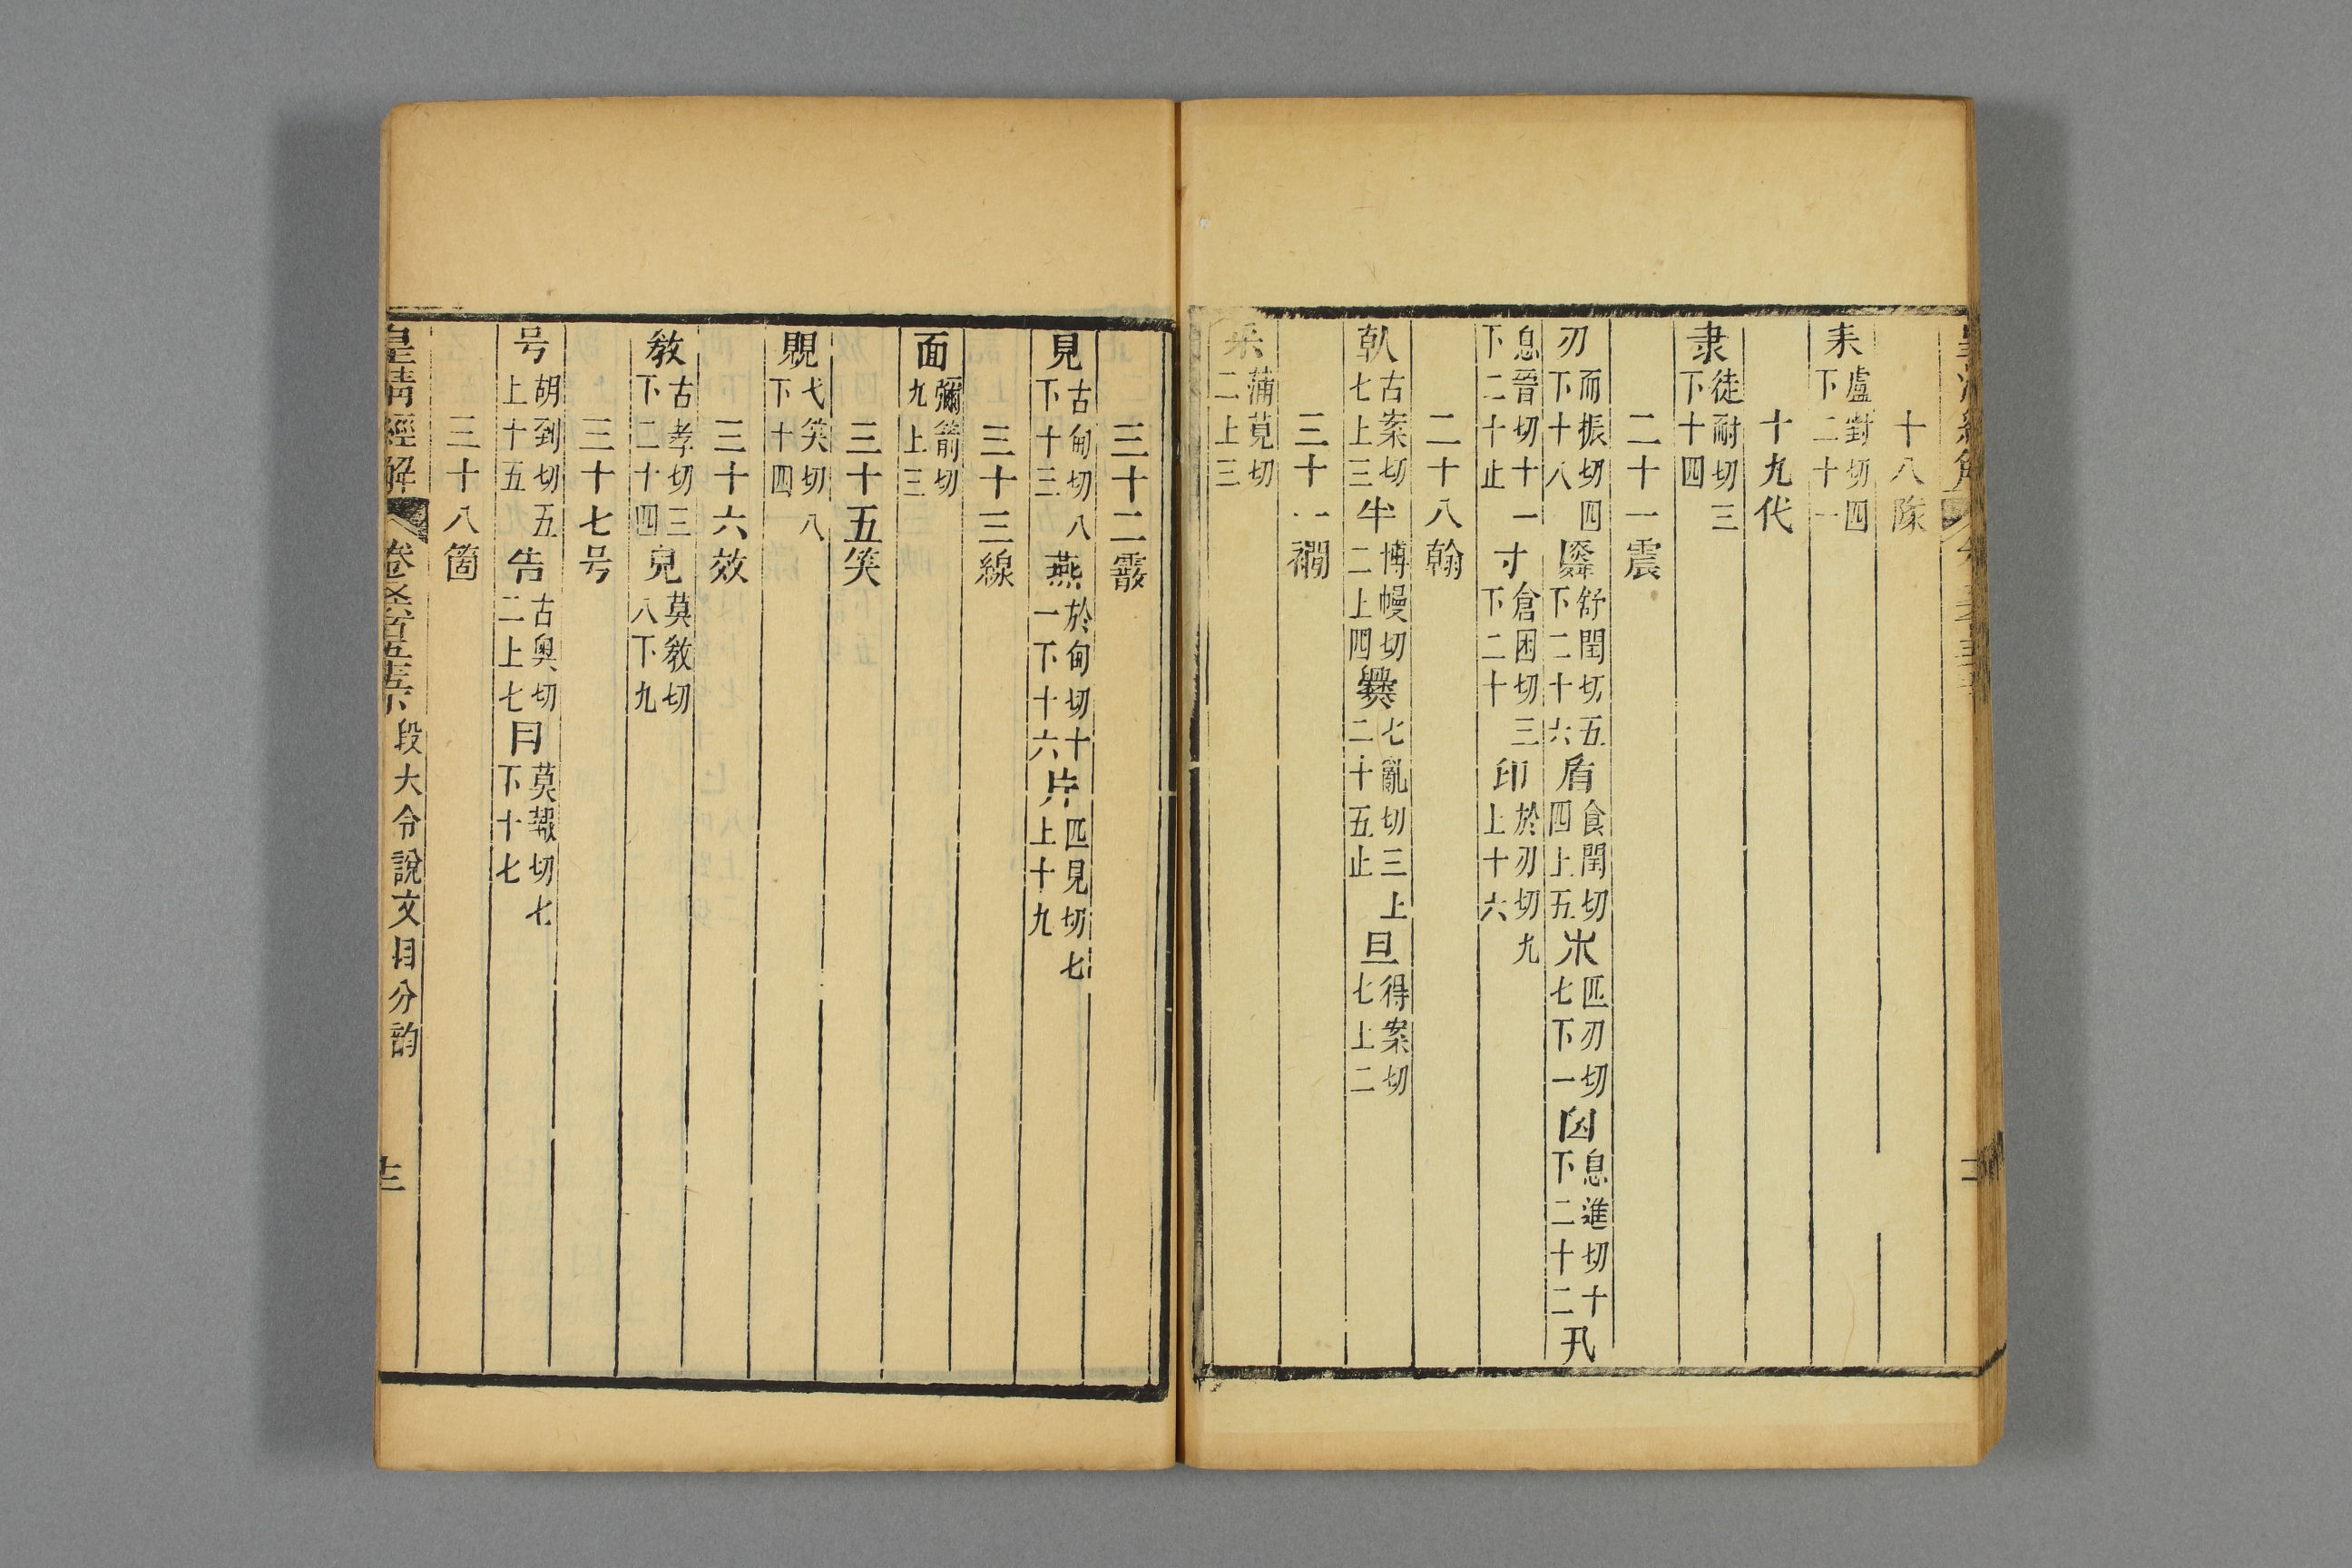 十八隊
耒盧對切四下二十一
十九代
隶徒耐切三下十四
二十一震
刃而振切四下十八㷠舒閏切五下二十六盾食閏切四上五𣎳匹刃切七下一囟息進切十下二十二卂
息晉切十一下二十止寸倉困切三下二十印於刃切九上十六
二十八翰
倝古案切七上三𠦒博幔切二上四爨七亂切三上二十五止旦得案切七上二
三十一襉
釆蒲莧切二上三
三十二霰
見古甸切八下十三燕於甸切十一下十六片匹見切七上十九
三十三線
面彌箭切九上三
三十五笑
覞弋笑切八下十四
三十六效
教古孝切三下二十四皃莫教切八下九
三十七号
号胡到切五上十五告古奧切二上七冃莫報切七下十七
三十八箇
皇清經解 段大令說文目分韵